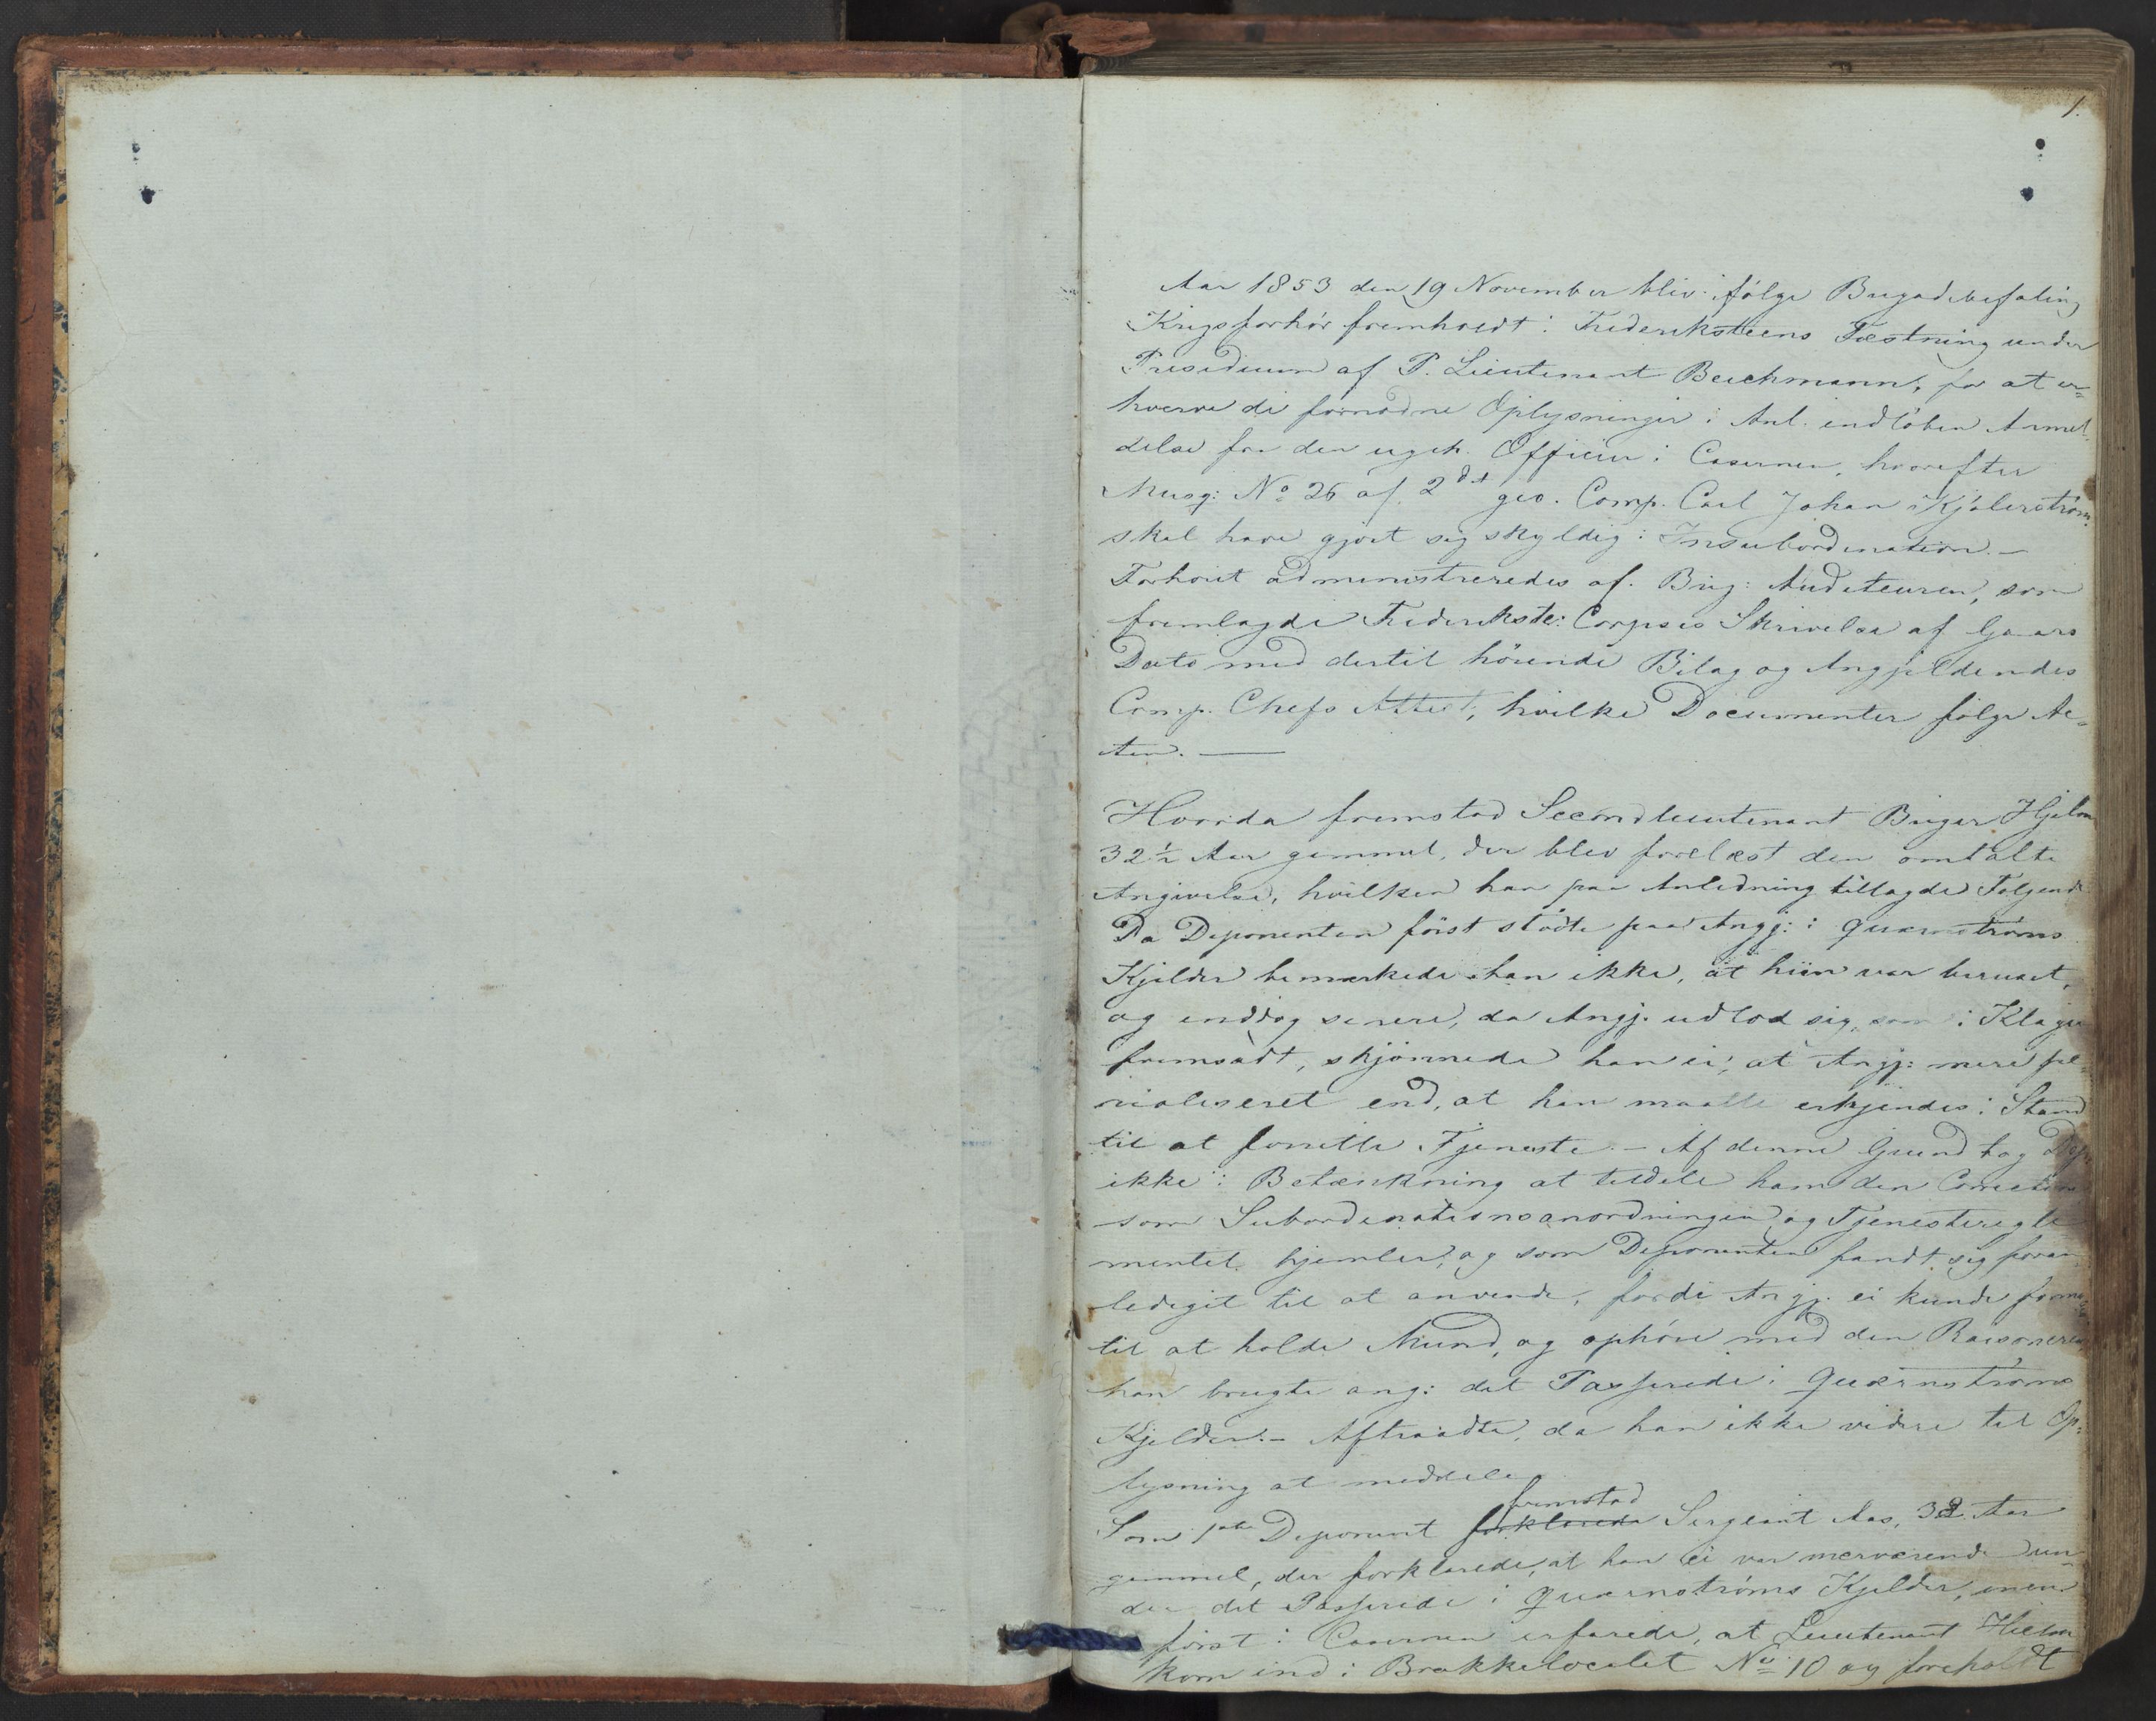 1.
Aar 1853 den 19 November blev ifølge Brigadebefaling
Krigsforhør fremholdt i Frederiksteens Fæstning under
Præsidium af P. Lieutenant Beichmann, for at er=
hverve de fornødne Oplysninger i Anl. indløben Anmel=
delse fra den ugeh. Officier i Casernen, hvorefter
Musq: No 26 af 2det gev. Comp. Carl Johan Kjølerstrøm
skal have gjort sig skyldig i Insubordination. –
Forhøret administreredes af Brig: Auditeuren, som
fremlagde Frederikste: Corpses Skrivelse af Gaars
Dato med dertil hørende Bilag og Angjeldendes
Comp. Chefs Attest, hvilke Documenter følge Ac=
ten. —
Hvorda fremstod Secondlieutenant Birger Hjelm
32½ Aar gammel, der blev forelæst den omtalte
Angivelse, hvilken han paa Anledning tillagde Følgende
Da Deponenten først stødte paa Angj: i Quærnstrøms
Kjelder bemærkede han ikke, at hiin var beruset,
og enddog senere, da Angj. udlod sig, som i Klagen
fremsadt, skjønnede han ei, at Angj: mere
end, at han maatte erkjendes i Stand
til at forrette Tjeneste. – Af denne Grund tog Dep.
ikke i Betænkning at tildele ham den Correction
som Subordinationsanordningen og Tjenestereglе
mentet hjemler, og som Deponenten fandt sig foran
lediget til at anvende, fordi Angj. ei kunde formaaes
til at holde Mund, og ophøre med den Raisoneren
han brugte ang: det Passerede i Quærnstrøms
Kjelder. – Aftraadte, da han ikke videre til Op=
lysning at meddele.
Som 1ste Deponent forklarede fremstod Sergeant Aas, 32 Aar
gammel, der forklarede, at han ei var nærværende un=
der det Passerede i Quærnstrøms Kjelder, men
først i Casernen erfarede, at Lieutenant Hielm
kom ind i Brakkelocalet No 10 og foreholdt